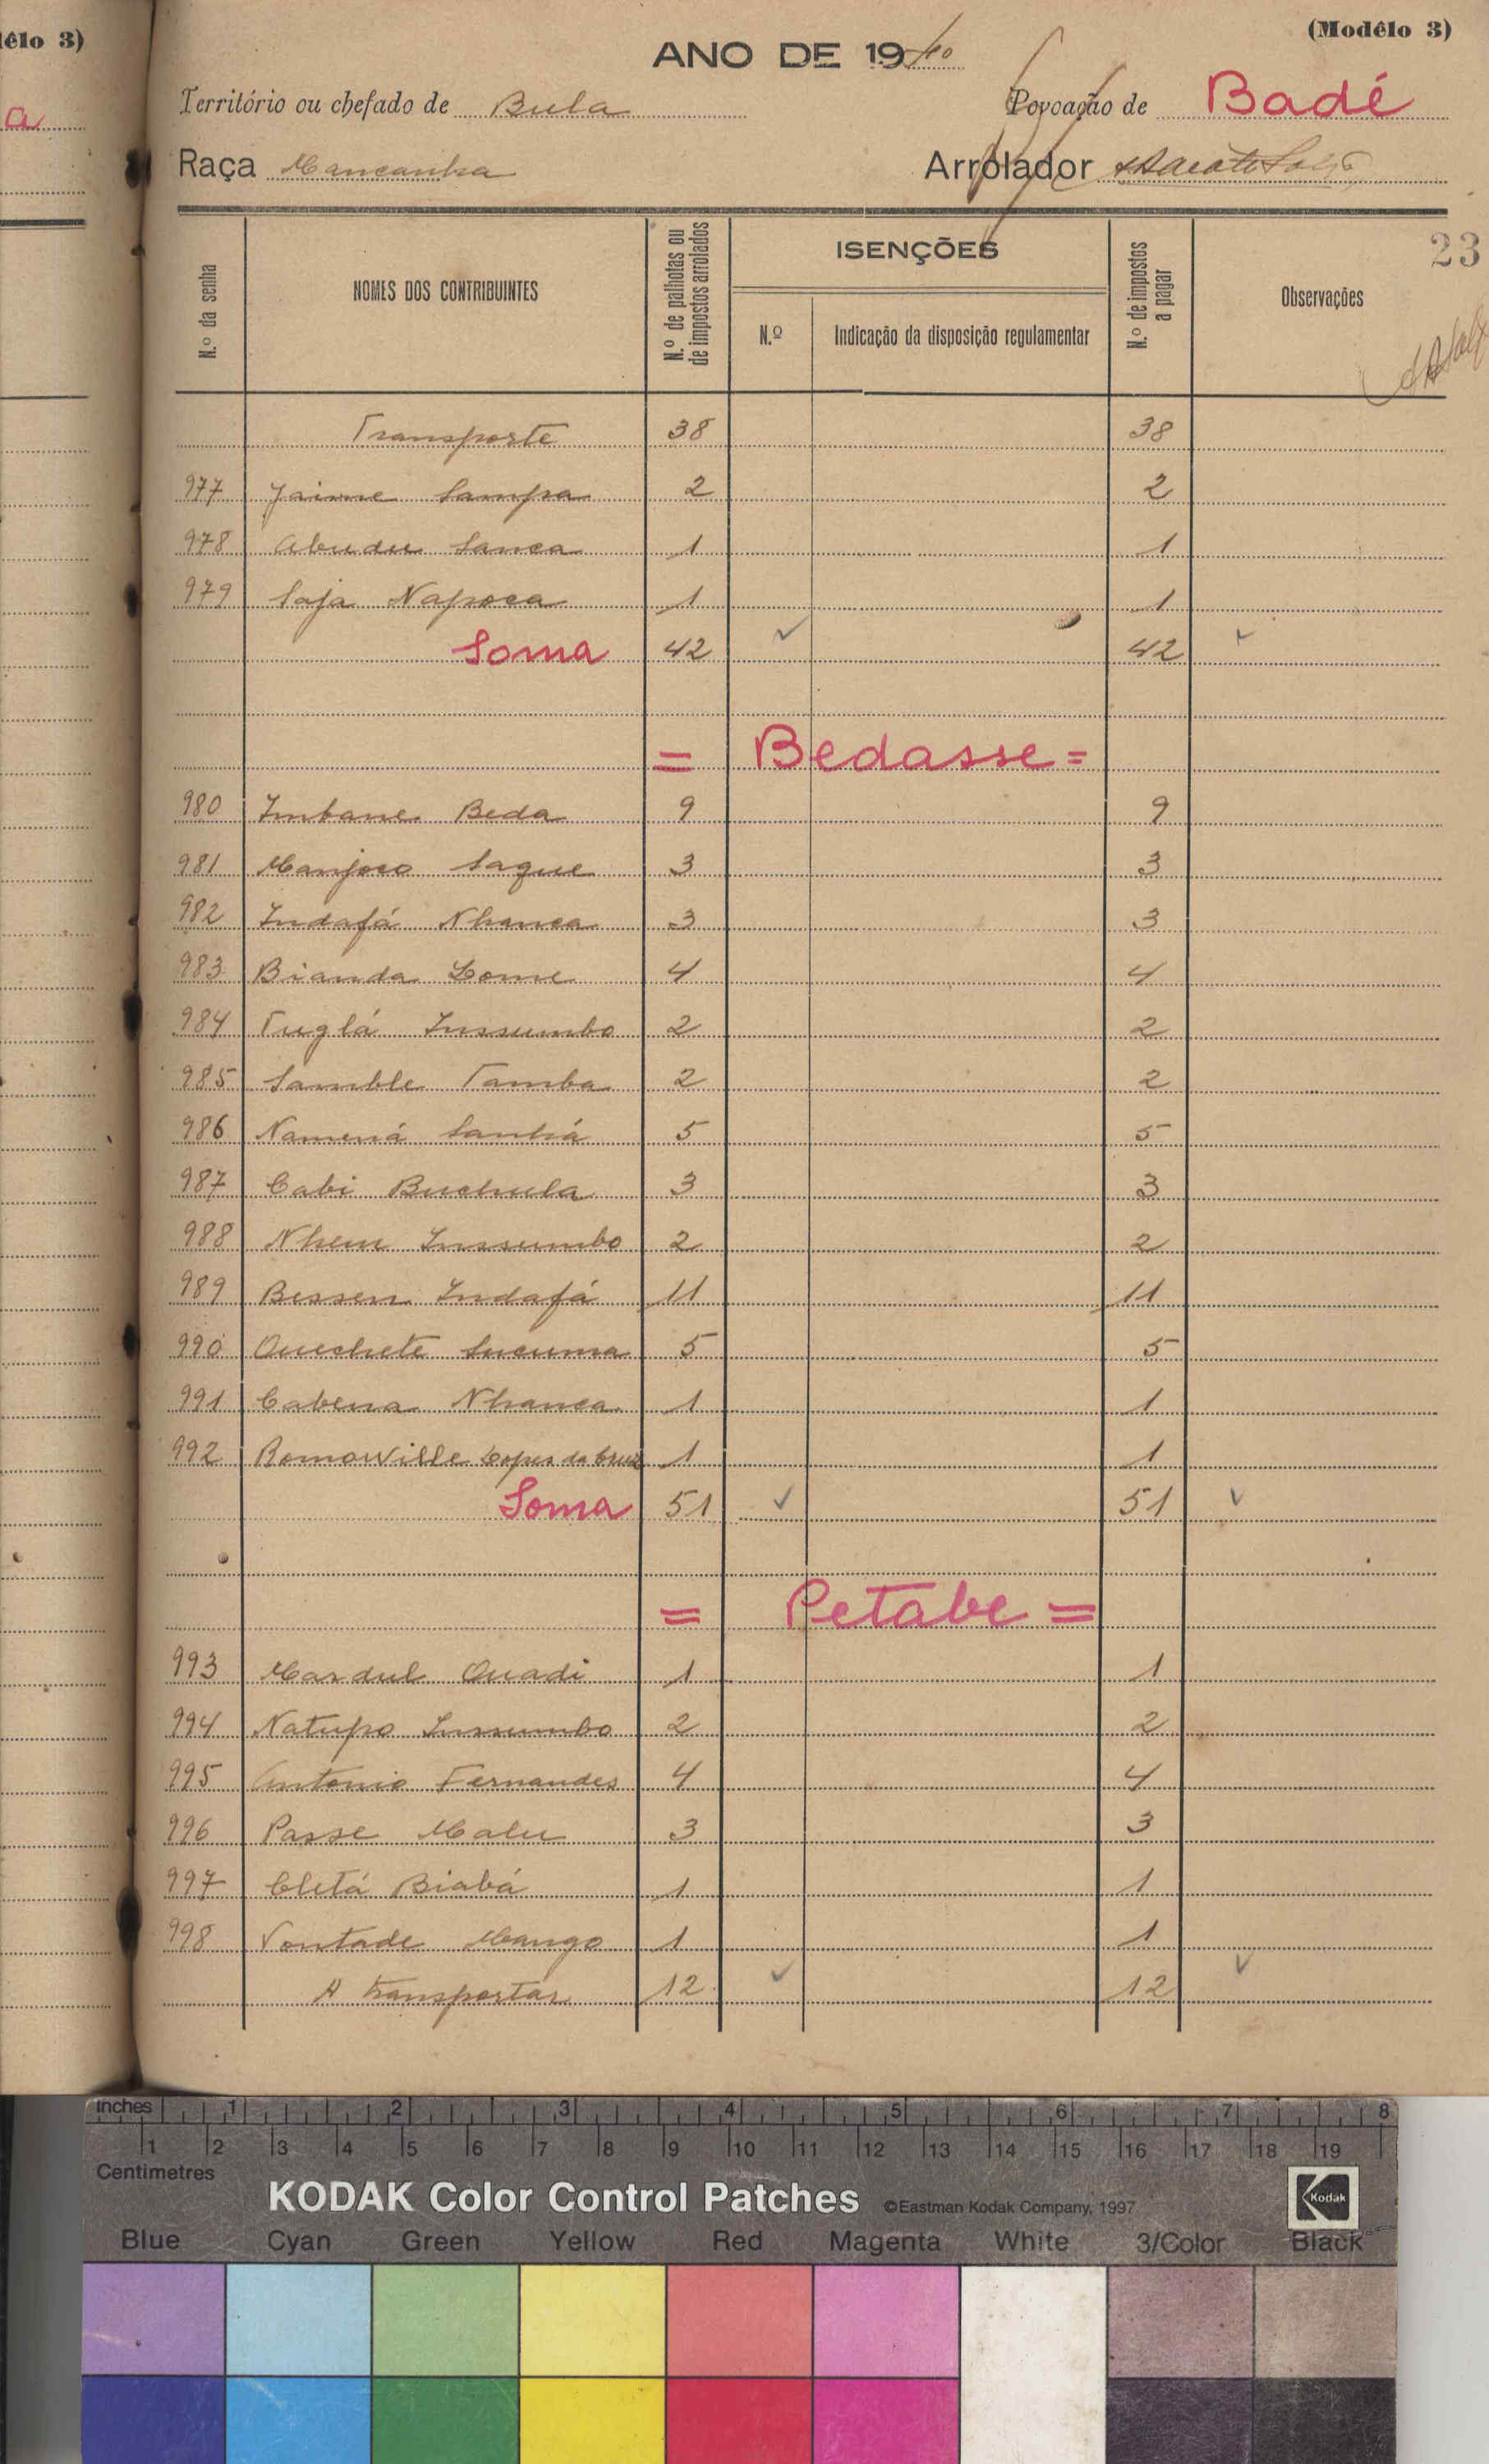 êlo 3)
a
(Modêlo 3)
ANO DE 1940
Território ou chefado de Bula
Povoação de Badé
Raça Mancanha
Arrolador
23
N.º da senha
NOMES DOS CONTRIBUINTES
N.º de palhotas ou de impostos arrolados
ISENÇÕES
N.º
Indicação da disposição regulamentar
N.º de impostos a pagar
Observações
Transporte 38 38
977 Jaime Sampa 2 2
978 Abudu Sanca 1 1
979 Saja Napoca 1 1
Soma 42 42
= Bedasse =
980 Imbane Beda 9 9
981 Manjoco Saque 3 3
982 Indafá Nhanca 3 3
983 Bianda Come 4 4
984 Tuglá Inssumbo 2 2
985 Samble Tamba 2 2
986 Namená Sanhá 5 5
987 Cabi Buchula 3 3
988 Nhem Inssumbo 2 2
989 Bessen Indafá 11 11
990 Ouechete Sucuma 5 5
991 Cabena Nhanca 1 1
992 Romowille Lopes da Cruz 1 1
Soma 51 51
= Petabe =
993 Mardul Ouadi 1 1
994 Natupo Inssumbo 2 2
995 Antonio Fernandes 4 4
996 Passe Malu 3 3
997 Cletá Biabá 1 1
998 Vontade Mango 1 1
A transportar 12 12
inches 1 2 3 4 5 6 7 8
1 2 3 4 5 6 7 8 9 10 11 12 13 14 15 16 17 18 19
Centimetres
KODAK Color Control Patches ©Eastman Kodak Company, 1997
Kodak
Blue Cyan Green Yellow Red Magenta White 3/Color Black